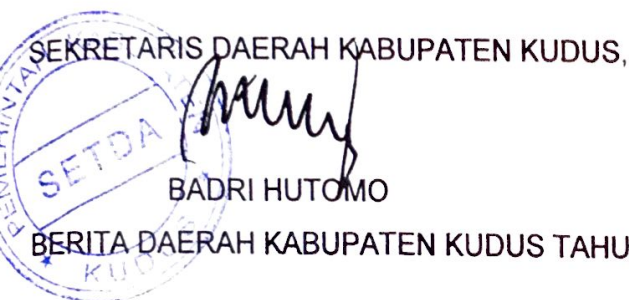 SEKRETARIS DAERAH KABUPATEN KUDUS,
SETDA
BADRI HUTOMO
BERITA DAERAH KABUPATEN KUDUS TAHU
KUDUS